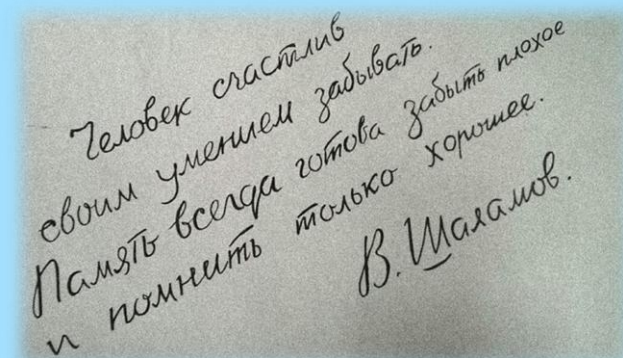 Человек счастлив
своим умением забывать.
Память всегда готова забыть плохое
и помнить только хорошее.
В. Шаламов.